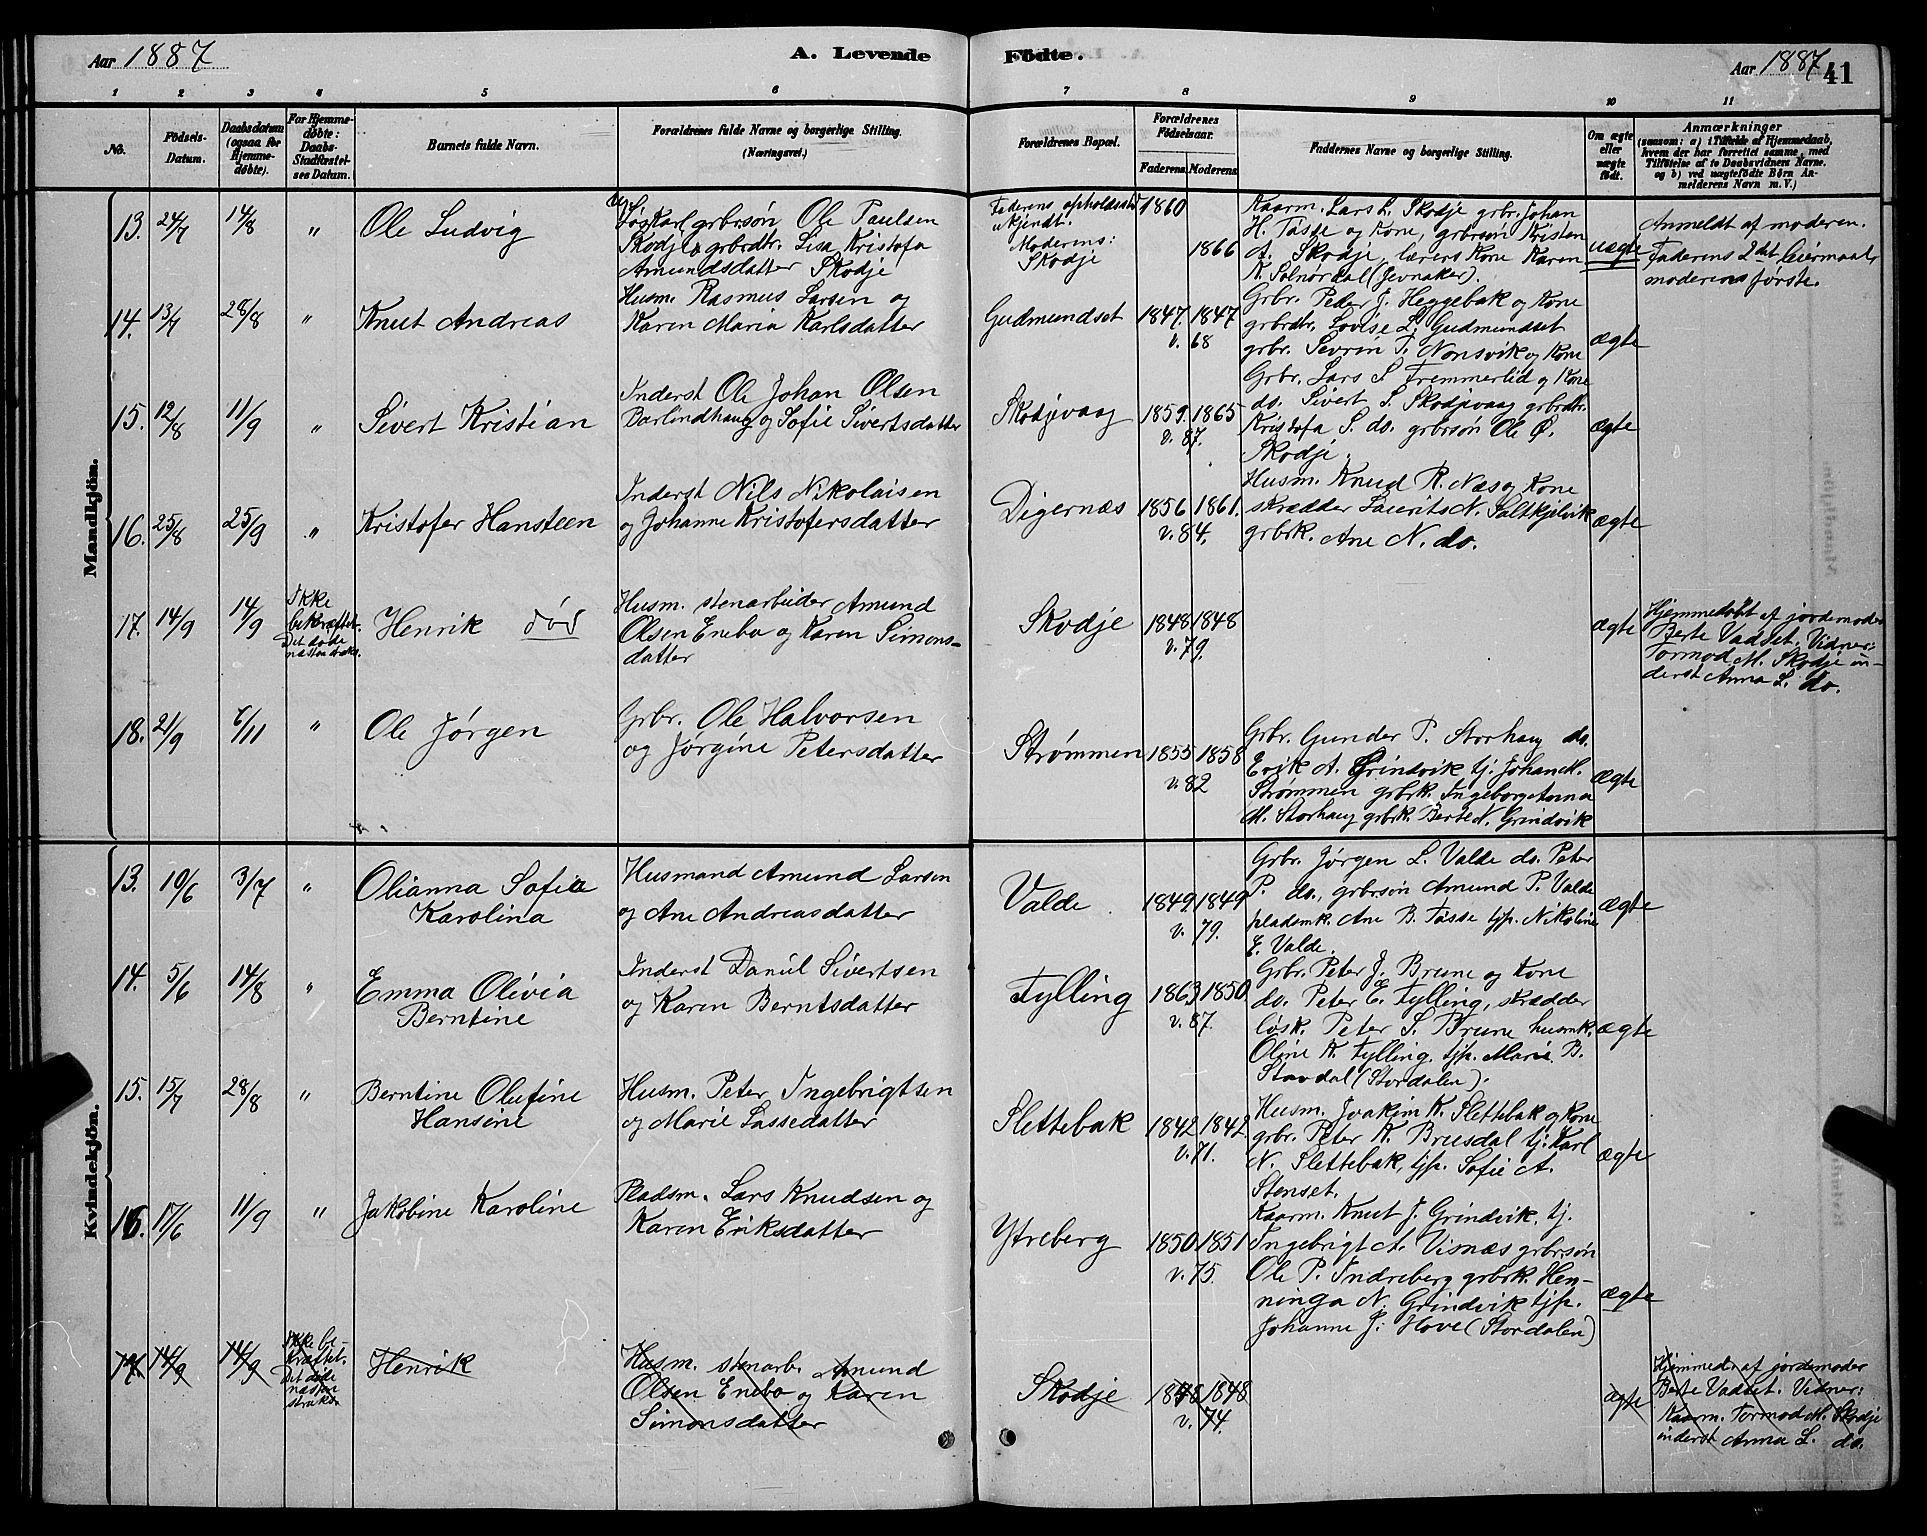 Aar 1887
A. Levende
Fødte.
Aar 1887
41
1 2 3 4 5 6 7 8 9 10 11
No.
Fødsels-
Datum.
Daabsdatum
(ogsaa for
Hjemme-
døbte).
For Hjemme-
døbte:
Daabs-
Stadfæstel-
ses Datum.
Barnets fulde Navn.
Forældrenes fulde Navne og borgerlige Stilling.
(Næringsvei.)
Forældrenes Bopæl.
Forældrenes
Fødselsaar.
Faderens. Moderens.
Faddernes Navne og borgerlige Stilling.
Om ægte
eller
uægte
født.
Anmærkninger
(saasom: a) i Tilfælde af Hjemmedaab,
hvem der har forrettet samme, med
Tilføielse af to Daabsvidners Navne,
og b) ved uægtefødte Børn An-
melderens Navn m. V.)
Mandkjön.
13. 24/7 14/8 "
Ole Ludvig
Løskarl grbrsön Ole Paulsen
Skodje grbrdtr. Lisa Kristofa
Amundsdatter Skodje
Faderens opholdssted
ukjendt.
Moderens:
Skodje
1860
1866
Kaarm. Lars L. Skodje grbr. Johan
H. Tasse og Kone, grbrsøn Kristen
A. Skodje, lærers Kone Karen
K. Solnørdal (Jevnaker).
uægte
Anmeldt af moderen.
Faderens 2det leiermaal,
moderens første.
14. 13/7 28/8 "
Knut Andreas
Husm. Rasmus Larsen og
Karen Maria Karlsdatter
Gudmundset
1847 1847
v. 68
Grbr. Peder J. Heggebak og Kone
grbrdtr. Lovise L. Gudmundset
grbr. Sevrin T. Nonsvik og Kone
ægte
15. 12/8 11/9 "
Sivert Kristian
Inderst Ole Johan Olsen
Barlindhaug og Sofie Sivertsdatter
Skodjevaag
1859. 1865
v. 87.
Grbr. Lars S. Fremmerlid og Kone
do. Sivert S. Skodjevaag grbrdtr.
Kristofa S. do. grbrsön Ole Ø.
Skodje.
ægte
16. 25/8 25/9 "
Kristofer Hansteen
Inderst Nils Nikolaisen
og Johanne Kristofersdatter
Digernæs
1856 1861.
v. 84.
Husm. Knud R. Næs og Kone
skrædder Laurits N. Saltkjelvik
grbrk. Ane N. do.
ægte
17. 14/9 14/9
Ikke
bekræftet.
Det døde
næsten straks.
Henrik død
Husm. stenarbeider Amund
Olsen Enebo og Karen Simons-
datter
Skodje
1848 1848
v. 79.
ægte
Hjemmedøbt af jordemoder
Berte Vadset. Vidner:
Tormod M. Skodje in-
derst Anna L. do.
18. 21/9 6/11 "
Ole Jørgen
Grbr. Ole Halvorsen
og Jørgine Petersdatter
Strømmen
1855 1858
v. 82
Grbr. Gunder P. Storhaug do.
Erik A. Grindvik tj. Johan M.
Strømmen grbrk. Ingeborg Anna
M. Storhaug grbrk. Berte N. Grindvik
ægte
Kvindekjön.
13. 10/6 3/7 "
Olianna Sofia
Karolina
Husmand Amund Larsen
og Ane Andreasdatter
Valde
1849. 1849
v. 79.
Grbr. Jørgen L. Valde do. Peter
P. do., grbrsön Amund P. Valde
pladsmk. Ane B. Tasse tjp. Nikoline
E. Valde.
ægte
14. 5/6 14/8 "
Emma Olivia
Berntine
Inderst Daniel Sivertsen
og Karen Berntsdatter
Fylling
1863 1850
v. 87.
Grbr. Peter J. Brune og Kone
do. Peter E. Fylling, skrædder
løsk. Peter S. Brune husmk.
Oline K. Fylling, tjp. Marie B.
Stavdal (Stordalen).
ægte
15. 15/7 28/8 "
Berntine Olufine
Hansine
Husm. Peter Ingebrigtsen
og Marie Lassedatter
Slettebak
1842 1842
v. 71.
Husm. Joakim K. Slettebak og Kone
grbr. Peter K. Brusdal tj. Karl
N. Slettebak, tjp. Sofie A.
Stenset.
ægte
16. 17/6 11/9 "
Jakobine Karoline
Pladsm. Lars Knudsen og
Karen Eriksdatter
Ytreberg
1850 1851
v. 75.
Kaarm. Knut J. Grindvik, tj.
Ingebrigt A. Visnæs grbrsøn
Ole P. Indreberg grbrk. Hen-
ninga N. Grindvik tjp.
Johanne J. Hove (Stordalen)
ægte
17. 14/9 14/9
Ikke be-
kræftet.
Det døde
næsten
straks
Henrik
Husm. stenarb. Amund
Olsen Enebo og Karen
Simonsdatter
Skodje
1848 1848
v. 74.
ægte
Hjemmedø af jordemoder
Berte Vadset. Vidner:
Kaarm. Tormod M. Skodje
inderst Anna L. do.